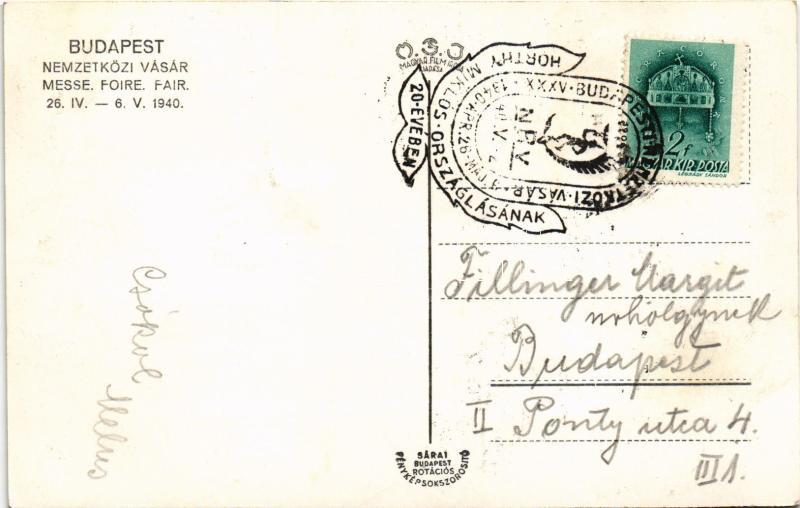 BUDAPEST
NEMZETKÖZI VÁSÁR
MESSE. FOIRE. FAIR.
26. IV. — 6. V. 1940.
M.F.I.
MAGYAR FILM IRODA
KIADÁSA
HORTHY MIKLÓS · ORSZÁGLÁSÁNAK
20-ÉVÉBEN
XXXV · BUDAPESTI NEMZETKÖZI · VÁSÁR ·
1940 · ÁPR. 26 - MÁJ. 6
2f
MAGYAR KIR. POSTA
LÉGRÁDY SÁNDOR
Csókol
Fillinger Margit
úrhölgynek
Budapest
II Ponty utca 4.
III 1.
SÁRAI
BUDAPEST
ROTÁCIÓS
FÉNYKÉPSOKSZOROSÍTÓ